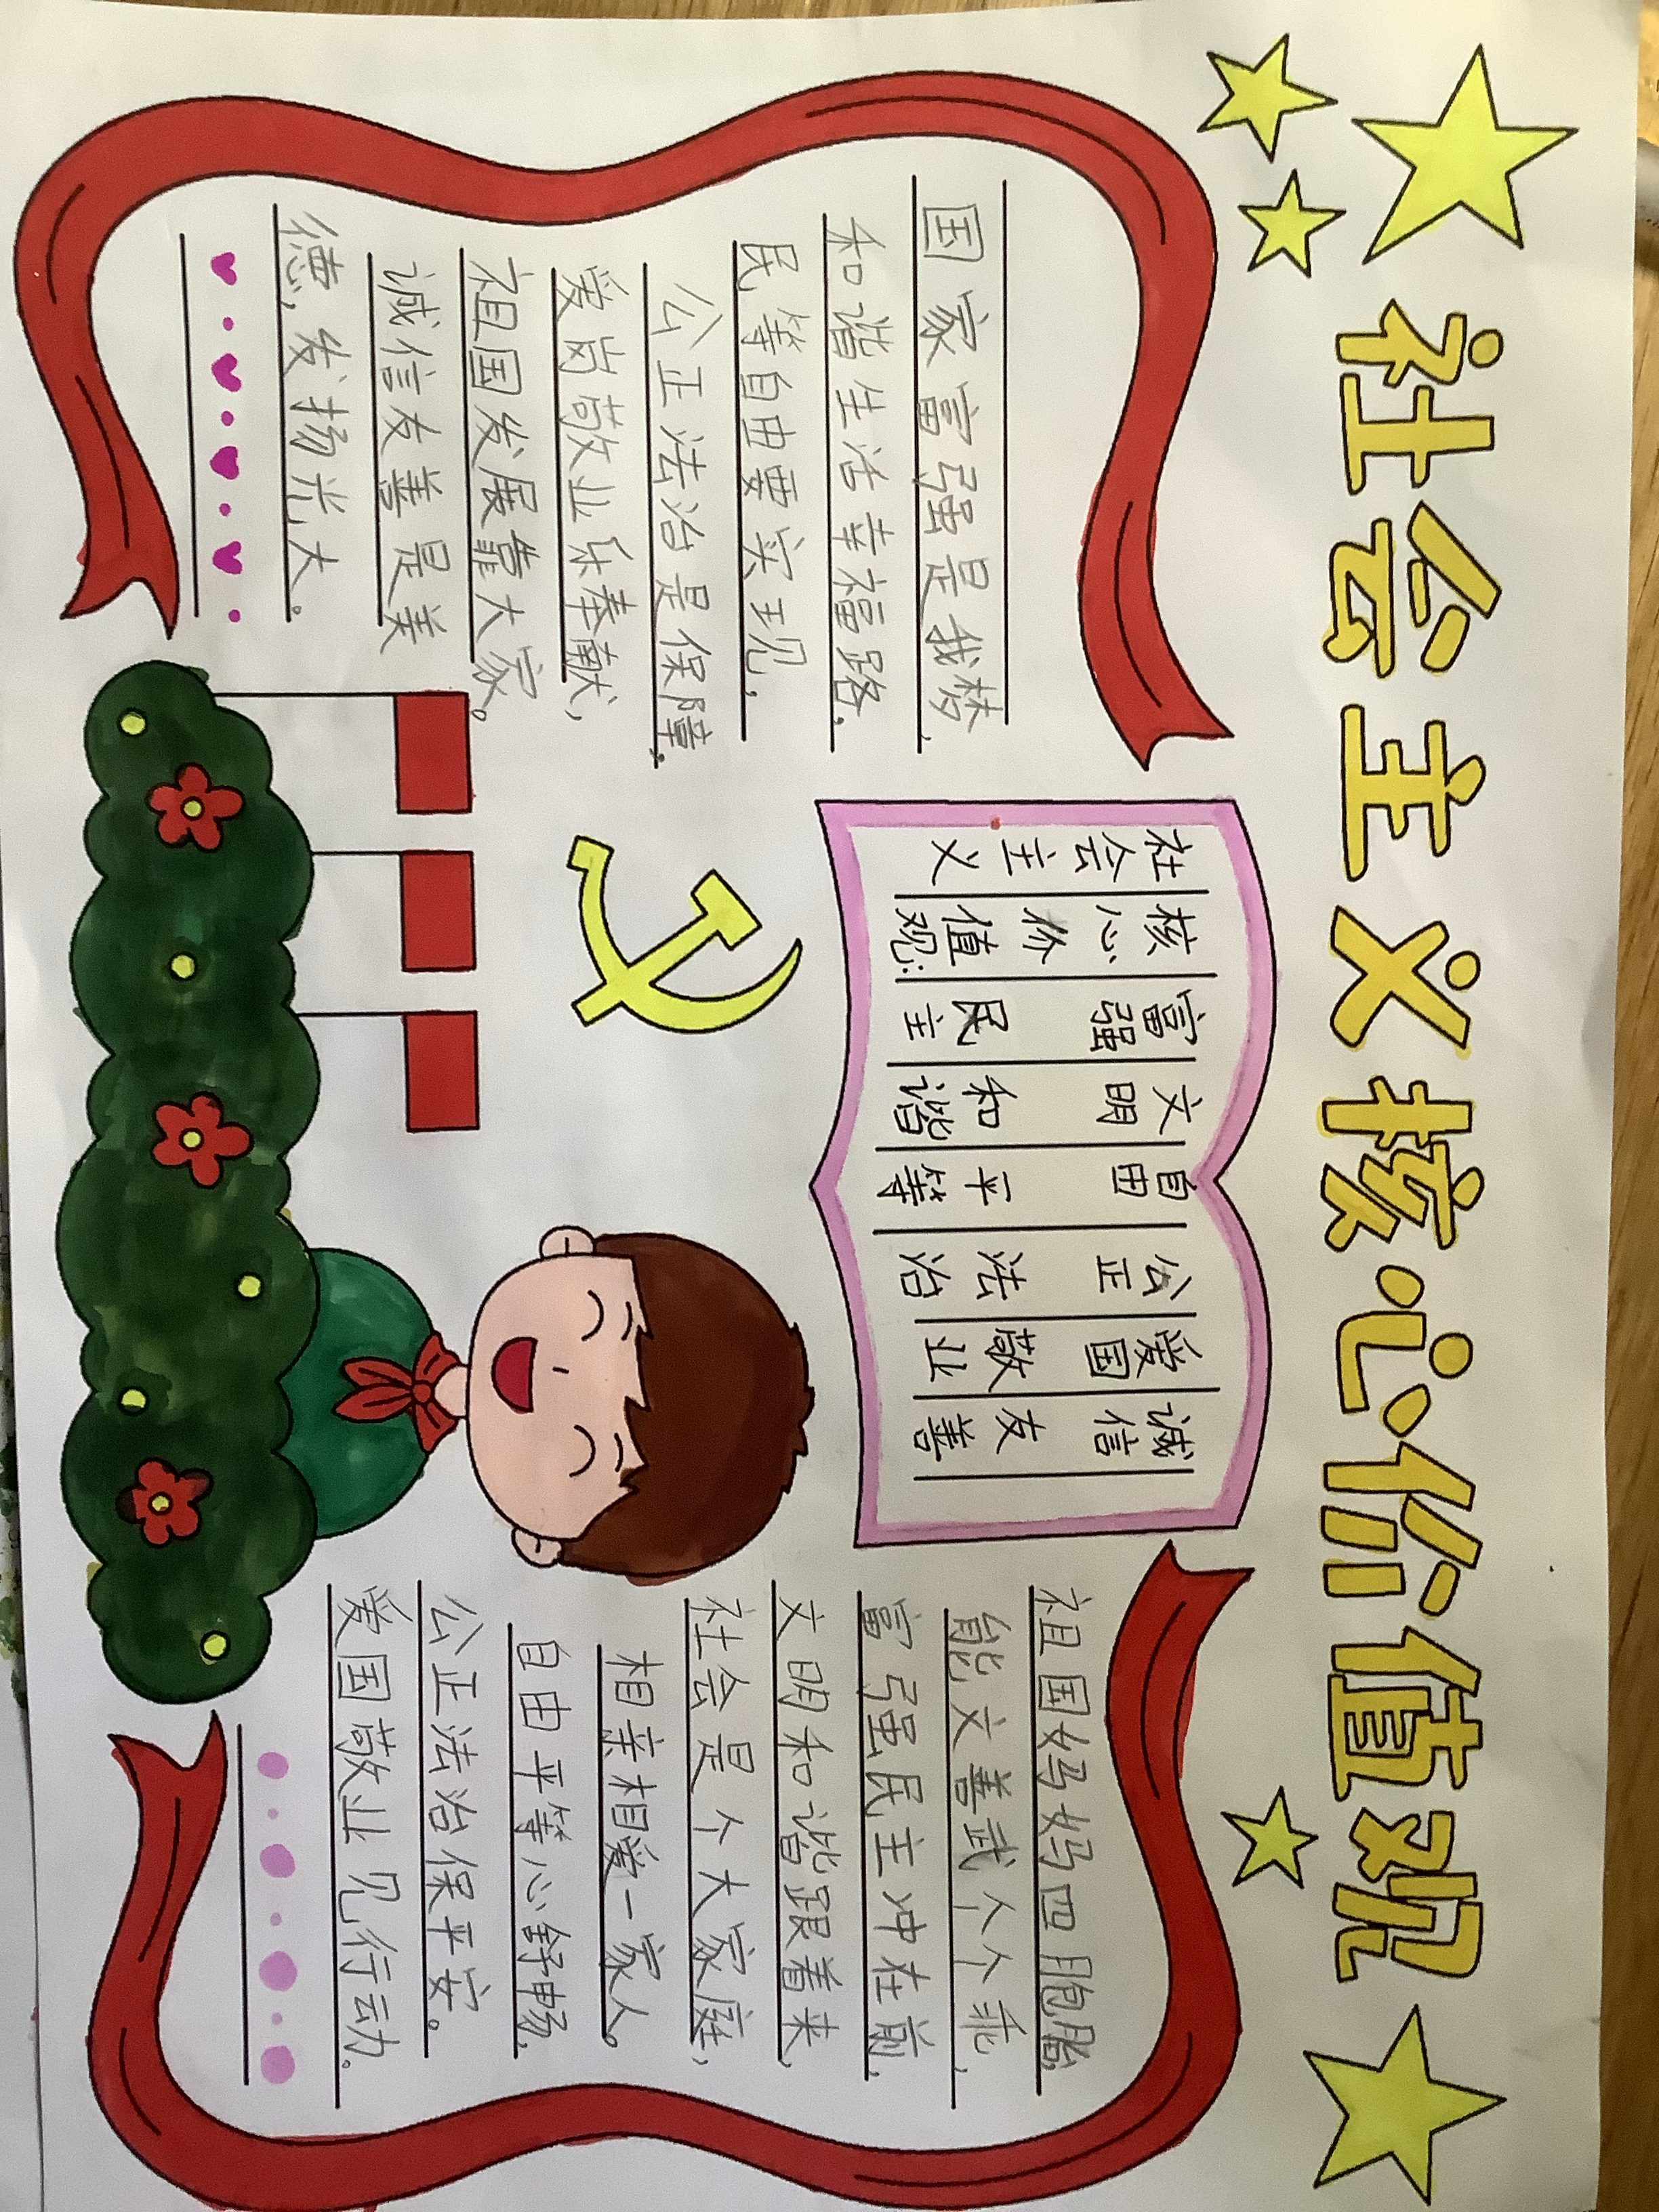 社会主义核心价值观
国家富强是我梦,
和谐生活幸福路,
民等自由要实现,
公正法治是保障.
爱岗敬业乐奉献,
祖国发展靠大家。
诚信友善是美
德,发扬光大。
社会主义
核心价值观:
富强 民主
文明 和谐
自由 平等
公正 法治
爱国 敬业
诚信 友善
祖国妈妈四胞胎,
能文善武个个乖,
富强民主冲在前,
文明和谐跟着来,
社会是个大家庭,
相亲相爱一家人。
自由平等心舒畅,
公正法治保平安。
爱国敬业见行动.